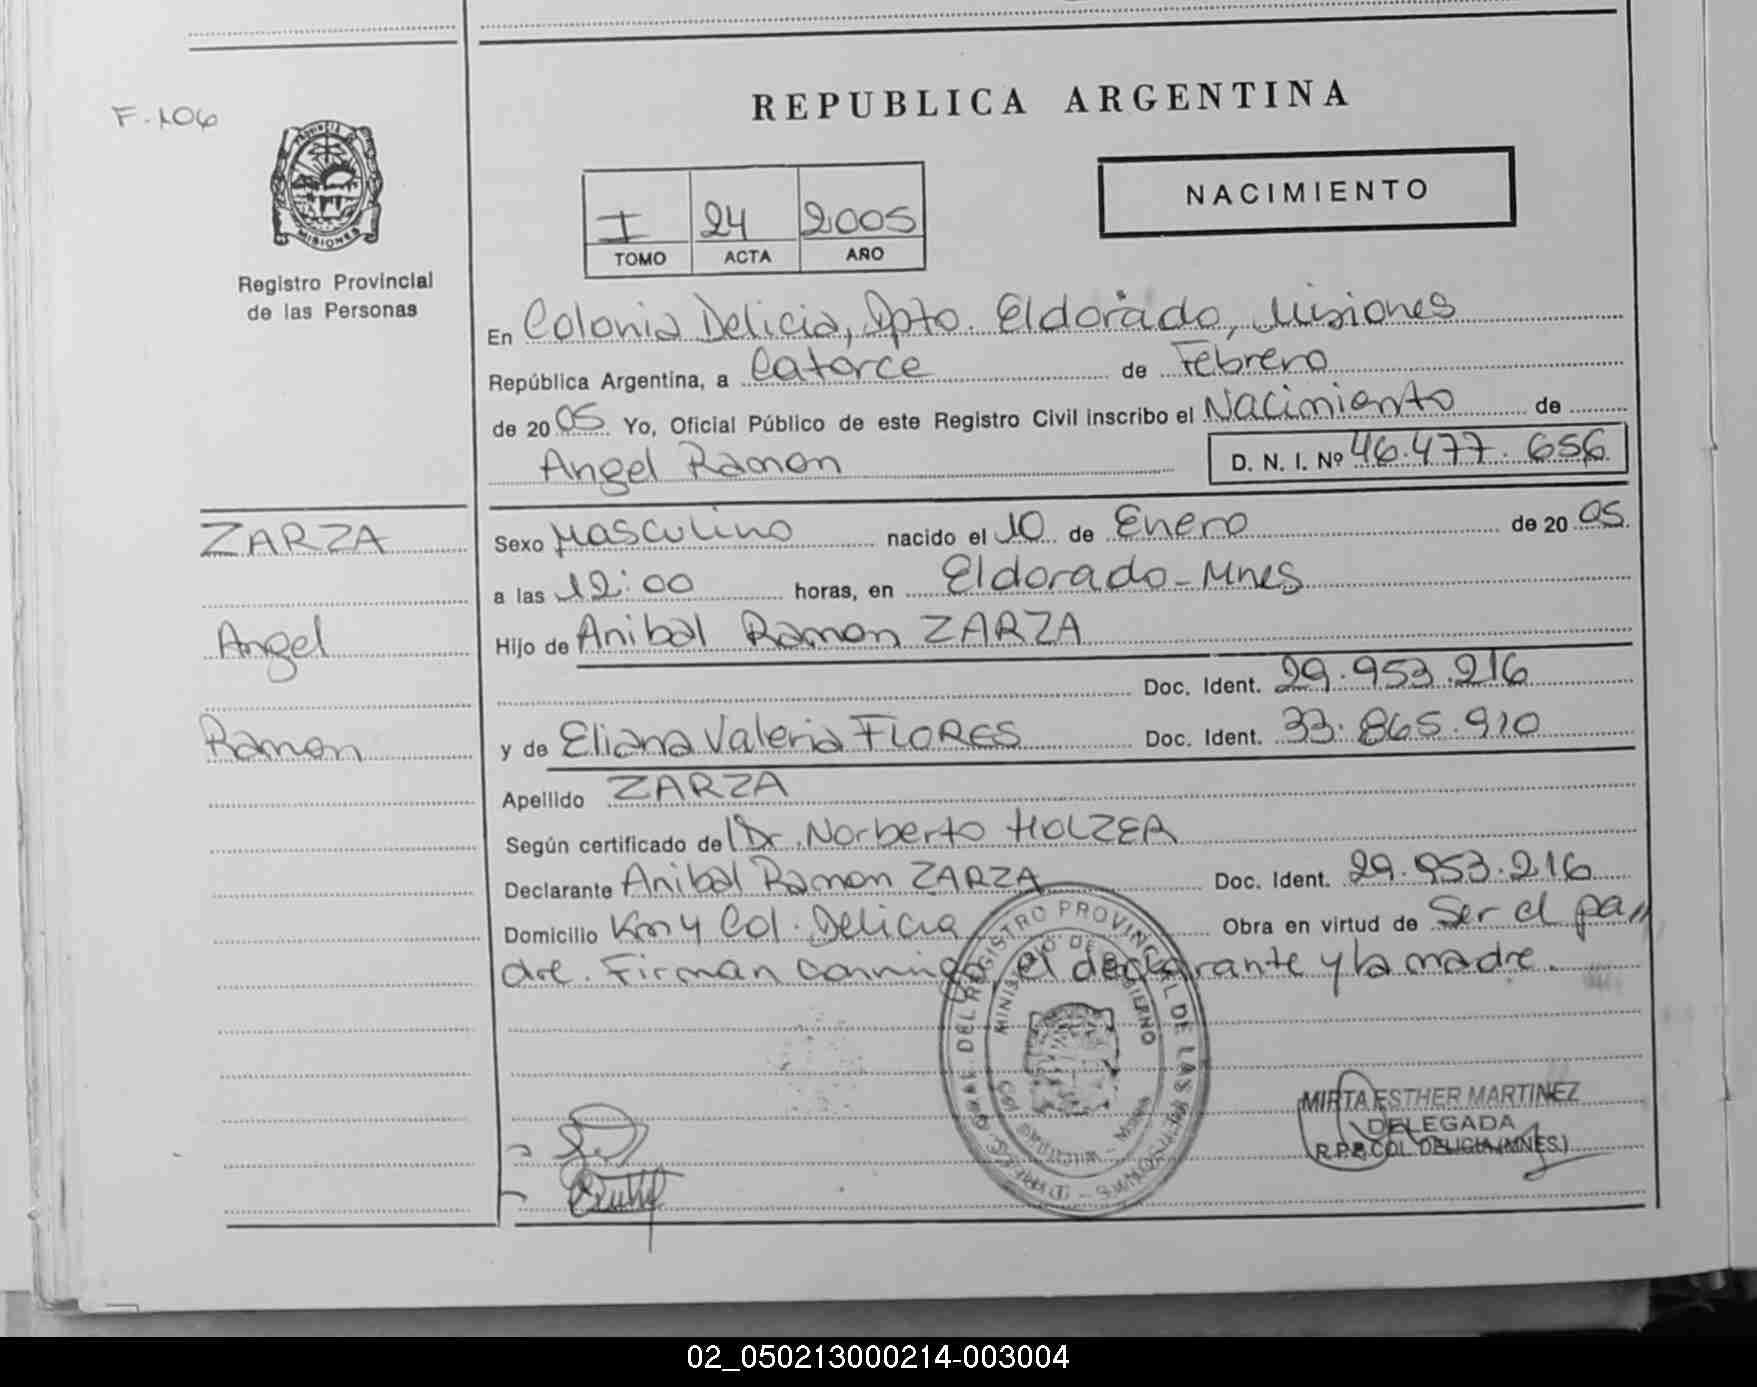 REPUBLICA ARGENTINA
F.106
PROVINCIA DE
MISIONES
Registro Provincial
de las Personas
I 24 2005
TOMO ACTA AÑO
NACIMIENTO
En Colonia Delicia, Dpto. Eldorado, Misiones
República Argentina, a Catorce de Febrero
de 2005 Yo, Oficial Público de este Registro Civil inscribo el Nacimiento de
Angel Ramon D. N. I. Nº 46.477.656
ZARZA
Angel
Ramon
Sexo Masculino nacido el 10 de Enero de 2005
a las 12:00 horas, en Eldorado-Mnes
Hijo de Anibal Ramon ZARZA
Doc. Ident. 29.953.216
y de Eliana Valeria FLORES Doc. Ident. 33.865.910
Apellido ZARZA
Según certificado de Dr. Norberto HOLZER
Declarante Anibal Ramon ZARZA Doc. Ident. 29.953.216
Domicilio Km 4 Col. Delicia Obra en virtud de Ser el pa
dre. Firman conmigo el declarante y la madre.
REGISTRO PROVINCIAL DE LAS PERSONAS
MINISTERIO DE GOBIERNO
MIRTA ESTHER MARTINEZ
DELEGADA
R.P.P. COL. DELICIA (MNES.)
02_050213000214-003004